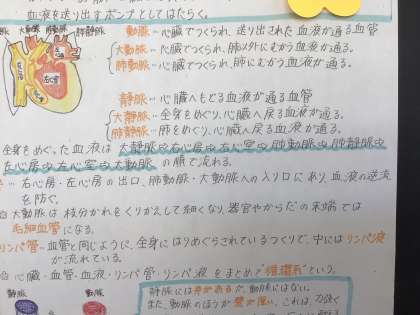 血液を送り出すポンプとしてはたらく。
大動脈 肺動脈 肺静脈
動脈…心臓でつくられ、送り出された血液が通る血管
大動脈…心臓でつくられ、肺以外にむかう血液が通る。
肺動脈…心臓でつくられ、肺にむかう血液が通る。
静脈…心臓へもどる血液が通る血管
大静脈…全身をめぐり、心臓へ戻る血液が通る。
肺静脈…肺をめぐり、心臓へ戻る血液が通る。
全身をめぐった血液は大静脈⇨右心房⇨右心室⇨肺動脈⇨肺静脈⇨
左心房⇨左心室⇨大動脈の順で流れる。
…右心房・左心房の出口、肺動脈・大動脈への入り口にあり血液の逆流
を防ぐ。
大動脈は枝分かれをくりかえして細くなり、器官やからだの末端では
毛細血管になる。
リンパ管…血管と同じように、全身にはりめぐらされているつくりで、中にはリンパ液
が流れている。
心臓・血管・血液・リンパ管・リンパ液をまとめて"循環系"という。
静脈 動脈
静脈には弁があるが、動脈にはない。
また、動脈のほうが壁が厚い。これは、力強く